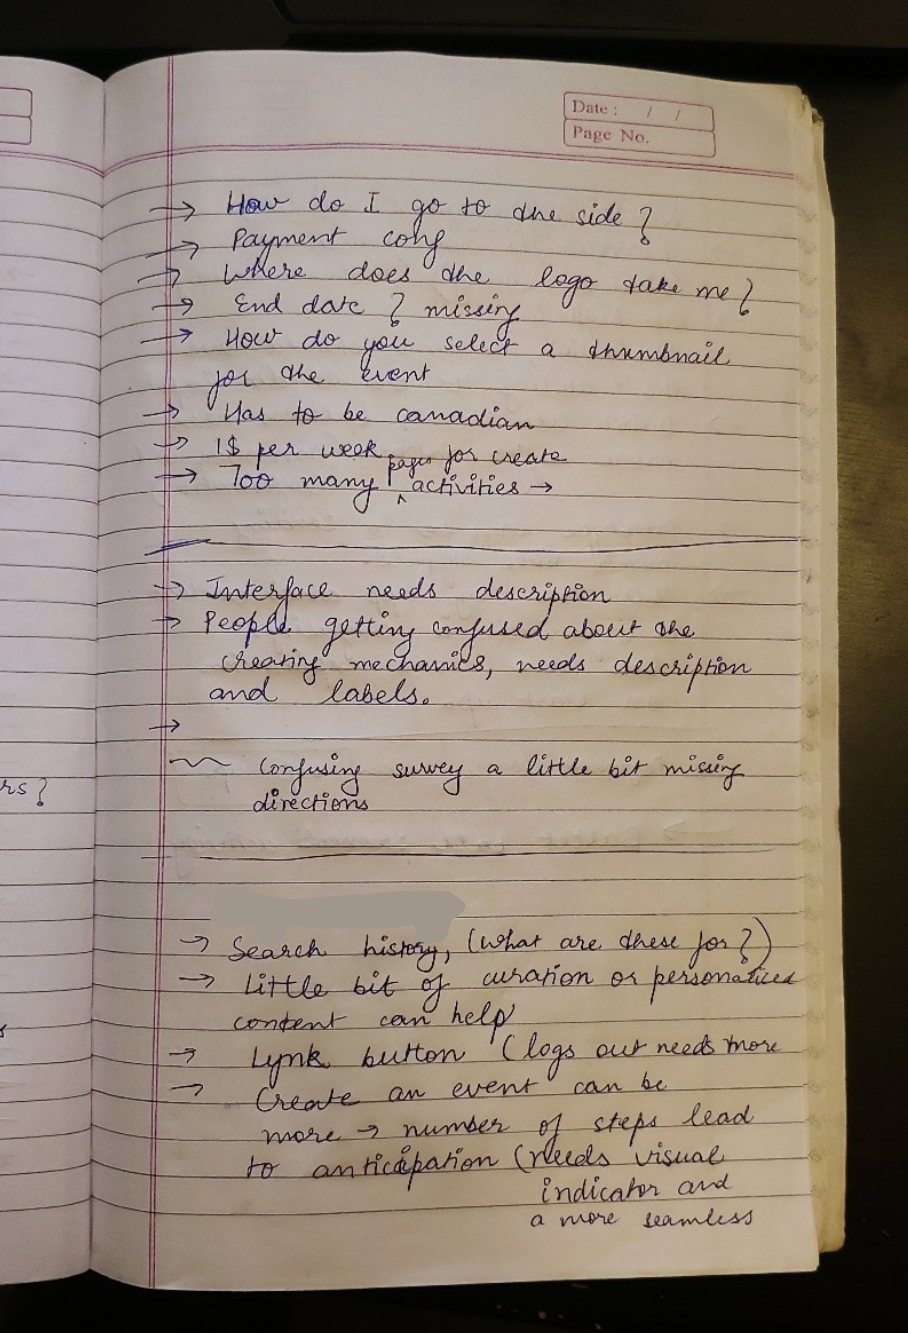 Date : / /
Page No.
→ How do I go to the side?
→ Payment conf
→ Where does the logo take me?
→ End date? missing
→ How do you select a thumbnail
for the event
→ Has to be canadian
→ 1$ per week
→ Too many pages for create activities →
→ Interface needs description
→ People getting confused about the
creating mechanics, needs description
and labels.
→
~ Confusing survey a little bit missing
directions
rs?
→ Search history, (what are these for?)
→ Little bit of curation or personalized
content can help
→ Lynk button (logs out needs more
→ Create an event can be
more → number of steps lead
to anticipation (needs visual
indicator and
a more seamless